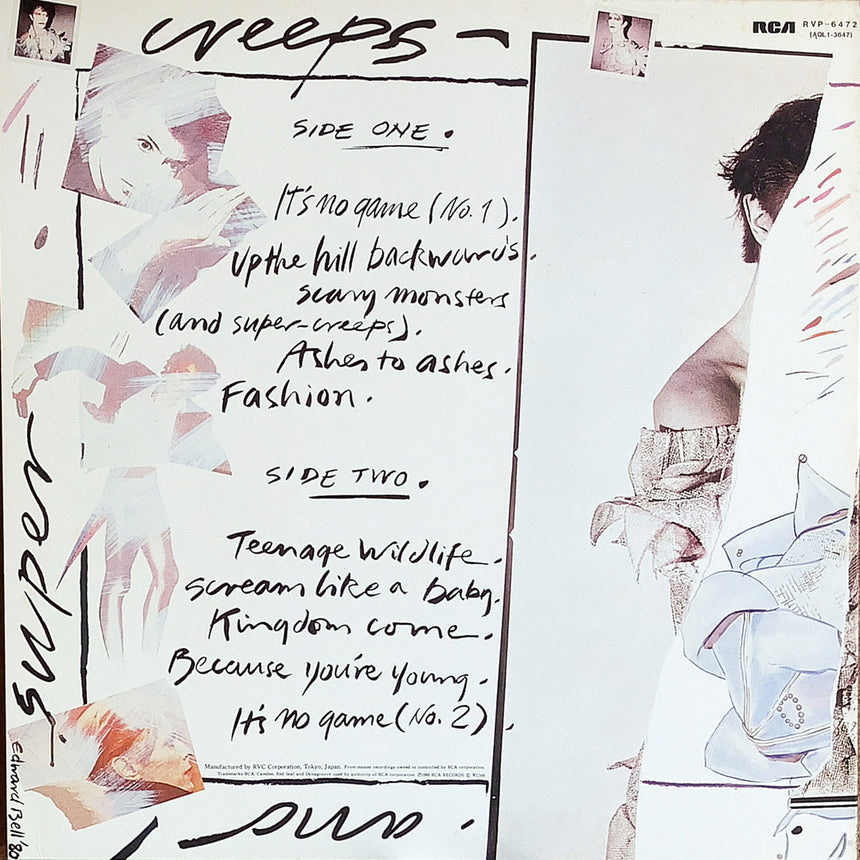 creeps -
RCA RVP-6472
(AQL1-3647)
SIDE ONE.
It's no game (No. 1).
Up the hill backwards.
scary monsters
(and super-creeps).
Ashes to ashes.
Fashion.
SIDE TWO.
Teenage Wildlife.
scream like a baby.
Kingdom come.
Because you're young.
It's no game (No. 2).
Manufactured by RVC Corporation, Tokyo, Japan. From master recordings owned or controlled by RCA corporation.
Trademarks RCA, Camden, Red Seal and Dynagroove used by authority of RCA corporation. ℗1980 RCA RECORDS
super
Edward Bell '80
and.